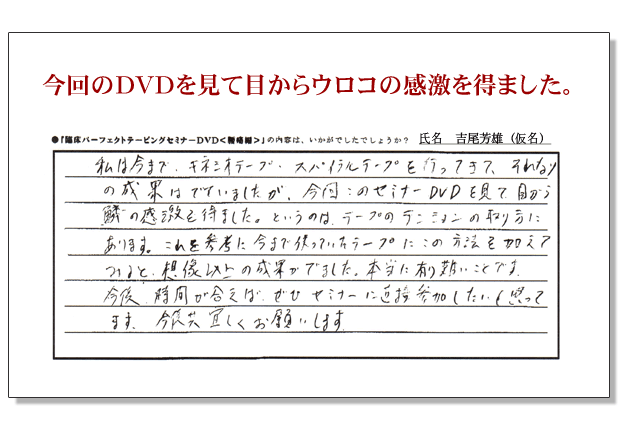 今回のDVDを見て目からウロコの感激を得ました。
●「臨床パーフェクトテーピングセミナーDVD<戦略編>」の内容は、いかがでしたでしょうか? 氏名 吉尾芳雄（仮名）
私は今まで、キネシオテープ、スパイラルテープを行ってきて、それなり
の成果はでていましたが、今回このセミナーDVDを見て、目から
鱗の感激を得ました。というのは、テープのテンションの取り方に
あります。これを参考に今まで使っていたテープにこの方法を加えて
つけると、想像以上の成果がでました。本当に有難いことです。
今後、時間が合えば、ぜひセミナーに直接参加したいと思って
ます。今後共宜しくお願いします。